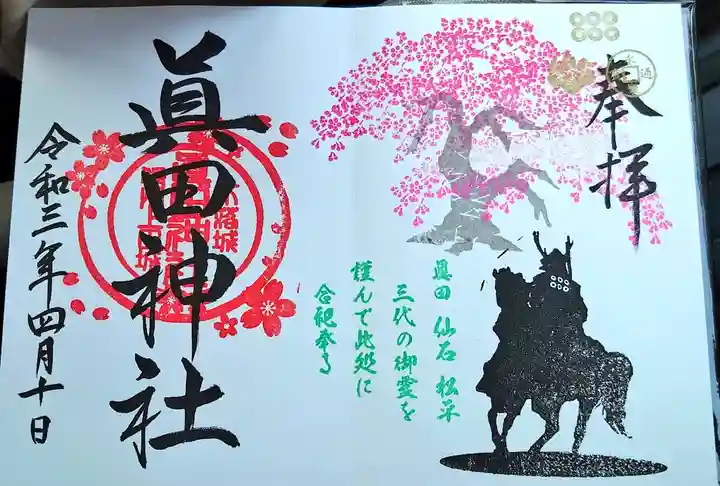 奉拝
眞田 仙石 松平
三代の御霊を
謹んで此処に
合祀奉る
眞田神社
令和三年四月十日